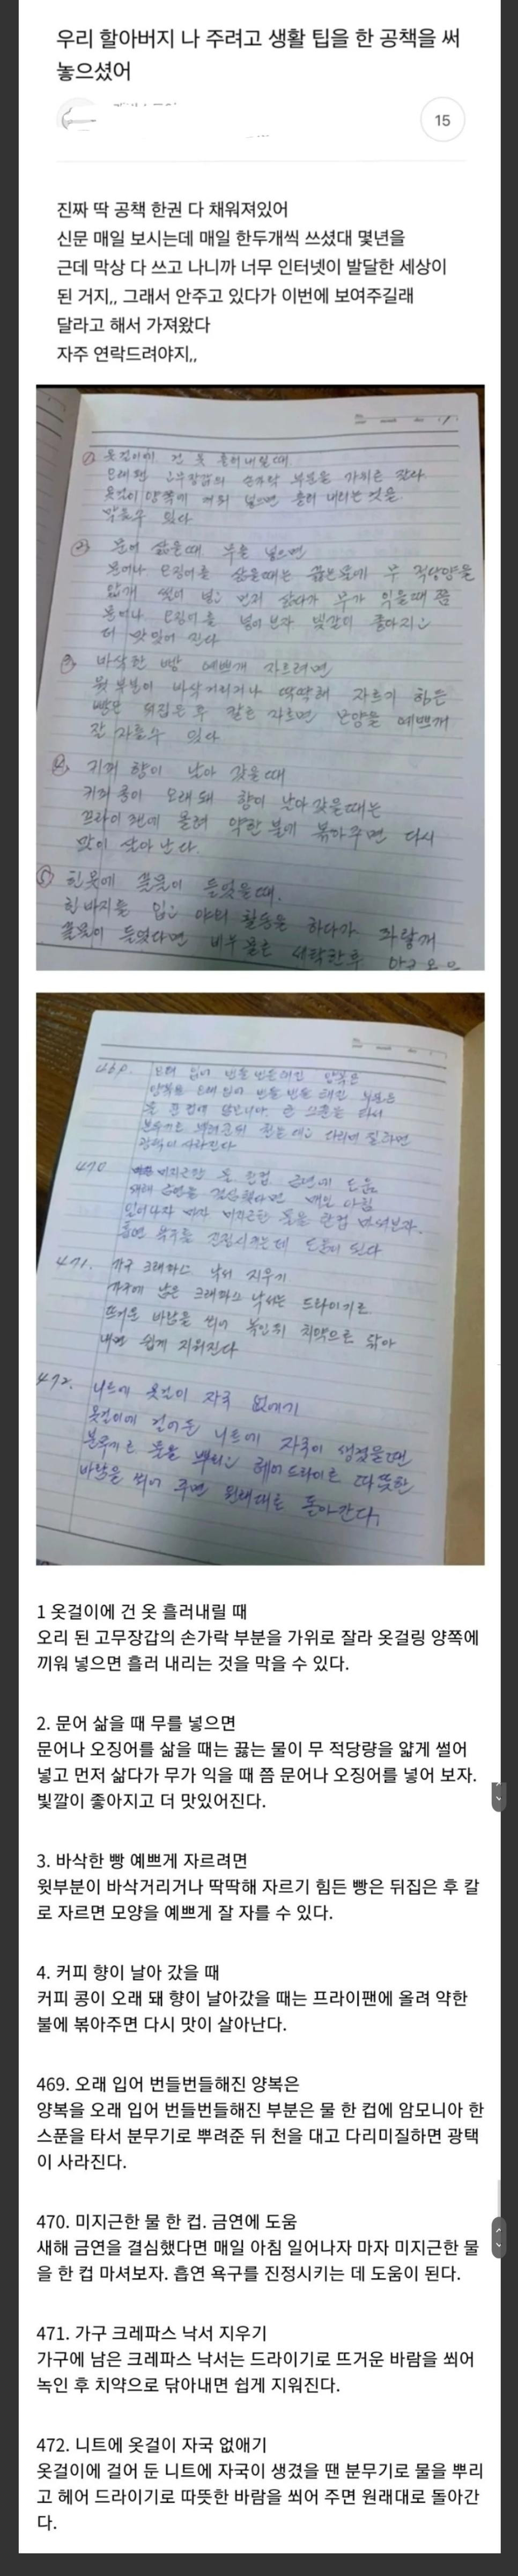 우리 할아버지 나 주려고 생활 팁을 한 공책을 써
놓으셨어
15
진짜 딱 공책 한권 다 채워져있어
신문 매일 보시는데 매일 한두개씩 쓰셨대 몇년을
근데 막상 다 쓰고 나니까 너무 인터넷이 발달한 세상이
된 거지,, 그래서 안주고 있다가 이번에 보여주길래
달라고 해서 가져왔다
자주 연락드려야지,,
① 옷걸이에 건 옷 흘러내릴때
오래된 고무장갑의 손가락 부분을 가위로 잘라
옷걸이 양쪽에 끼워 넣으면 흘러 내리는 것을
막을수 있다
② 문어 삶을때 무를 넣으면
문어나 오징어를 삶을때는 끓는물에 무 적당양을
얇게 썰어 넣고 먼저 삶다가 무가 익을때 쯤
문어나 오징어를 넣어보자 빛갈이 좋아지고
더 맛있어 진다
③ 바삭한 빵 예쁘개 자르려면
윗부분이 바삭거리거나 딱딱해 자르기 힘든
빵은 뒤집은 후 칼로 자르면 모양을 예쁘개
잘 자를수 있다
④ 커피 향이 날아 갔을때
커피콩이 오래돼 향이 날아갔을때는
프라이팬에 올려 약한 불에 볶아주면 다시
맛이 살아난다.
⑤ 흰옷에 풀물이 들었을때.
흰바지를 입고 야외 활동을 하다가
풀물이 들였다면 세탁한후
469. 오래 입어 번들번들해진 양복은
양복을 오래입어 번들번들해진 부분은
물 한컵에 암모니아 한 스푼을 타서
분무기로 뿌려준뒤 천을 대고 다리미질하면
광택이 사라진다
470 미지근한 물 한컵 금연에 도움
새해 금연을 결심했다면 매일 아침
일어나자 마자 미지근한 물을 한컵 마셔보자.
흡연 욕구를 진정시키는데 도움이 된다
471. 가구 크래파스 낙서 지우기
가구에 남은 크래파스 낙서는 드라이기로
뜨거운 바람을 쐬어 녹인뒤 치약으로 닦아
내면 쉽게 지워진다
472. 니트에 옷걸이 자국 없애기
옷걸이에 걸어둔 니트에 자국이 생겼을땐
분무기로 물을 뿌리고 헤어드라이로 따뜻한
바람을 쐬어 주면 원래대로 돌아간다.
1 옷걸이에 건 옷 흘러내릴 때
오리 된 고무장갑의 손가락 부분을 가위로 잘라 옷걸링 양쪽에
끼워 넣으면 흘러 내리는 것을 막을 수 있다.
2. 문어 삶을 때 무를 넣으면
문어나 오징어를 삶을 때는 끓는 물이 무 적당량을 얇게 썰어
넣고 먼저 삶다가 무가 익을 때 쯤 문어나 오징어를 넣어 보자.
빛깔이 좋아지고 더 맛있어진다.
3. 바삭한 빵 예쁘게 자르려면
윗부분이 바삭거리거나 딱딱해 자르기 힘든 빵은 뒤집은 후 칼
로 자르면 모양을 예쁘게 잘 자를 수 있다.
4. 커피 향이 날아 갔을 때
커피 콩이 오래 돼 향이 날아갔을 때는 프라이팬에 올려 약한
불에 볶아주면 다시 맛이 살아난다.
469. 오래 입어 번들번들해진 양복은
양복을 오래 입어 번들번들해진 부분은 물 한 컵에 암모니아 한
스푼을 타서 분무기로 뿌려준 뒤 천을 대고 다리미질하면 광택
이 사라진다.
470. 미지근한 물 한 컵. 금연에 도움
새해 금연을 결심했다면 매일 아침 일어나자 마자 미지근한 물
을 한 컵 마셔보자. 흡연 욕구를 진정시키는 데 도움이 된다.
471. 가구 크레파스 낙서 지우기
가구에 남은 크레파스 낙서는 드라이기로 뜨거운 바람을 쐬어
녹인 후 치약으로 닦아내면 쉽게 지워진다.
472. 니트에 옷걸이 자국 없애기
옷걸이에 걸어 둔 니트에 자국이 생겼을 땐 분무기로 물을 뿌리
고 헤어 드라이기로 따뜻한 바람을 쐬어 주면 원래대로 돌아간
다.